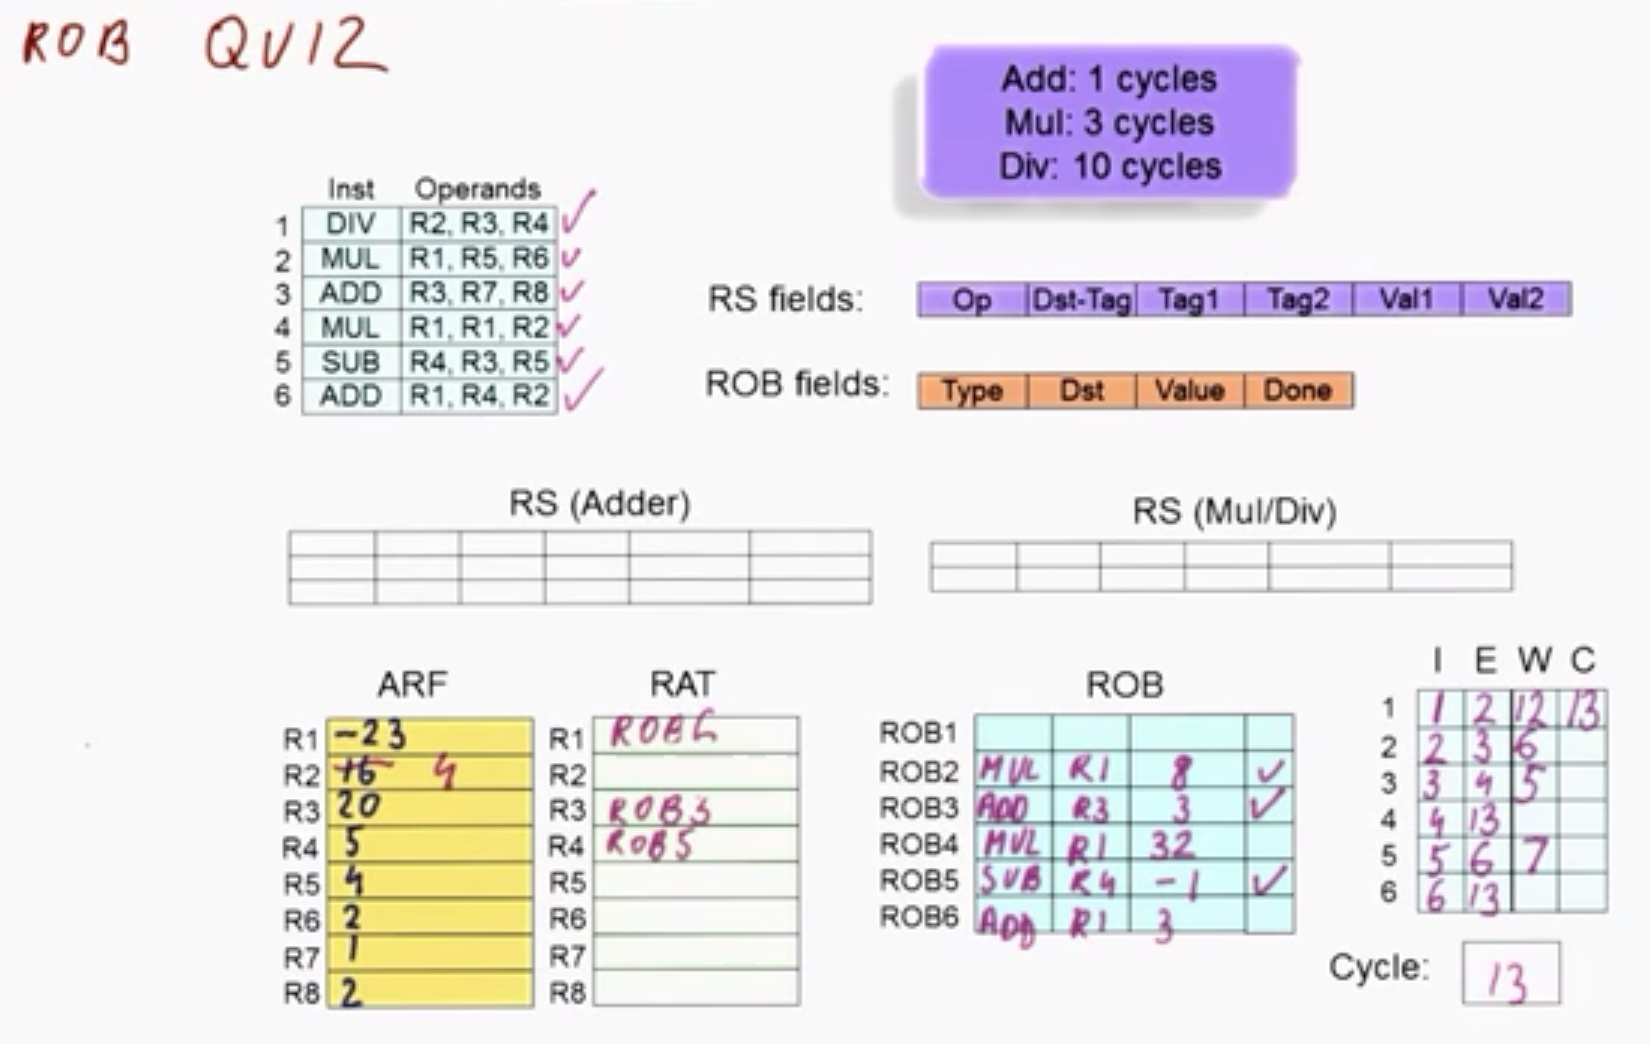 ROB QUIZ
Add: 1 cycles
Mul: 3 cycles
Div: 10 cycles
Inst Operands
1 DIV R2, R3, R4 ✓
2 MUL R1, R5, R6 ✓
3 ADD R3, R7, R8 ✓
4 MUL R1, R1, R2 ✓
5 SUB R4, R3, R5 ✓
6 ADD R1, R4, R2 ✓
RS fields: Op Dst-Tag Tag1 Tag2 Val1 Val2
ROB fields: Type Dst Value Done
RS (Adder)
RS (Mul/Div)
ARF
R1 -23
R2 16 4
R3 20
R4 5
R5 4
R6 2
R7 1
R8 2
RAT
R1 ROB6
R2
R3 ROB3
R4 ROB5
R5
R6
R7
R8
ROB
ROB1
ROB2 MUL R1 8 ✓
ROB3 ADD R3 3 ✓
ROB4 MUL R1 32
ROB5 SUB R4 -1 ✓
ROB6 ADD R1 3
I E W C
1 1 2 12 13
2 2 3 6
3 3 4 5
4 4 13
5 5 6 7
6 6 13
Cycle: 13